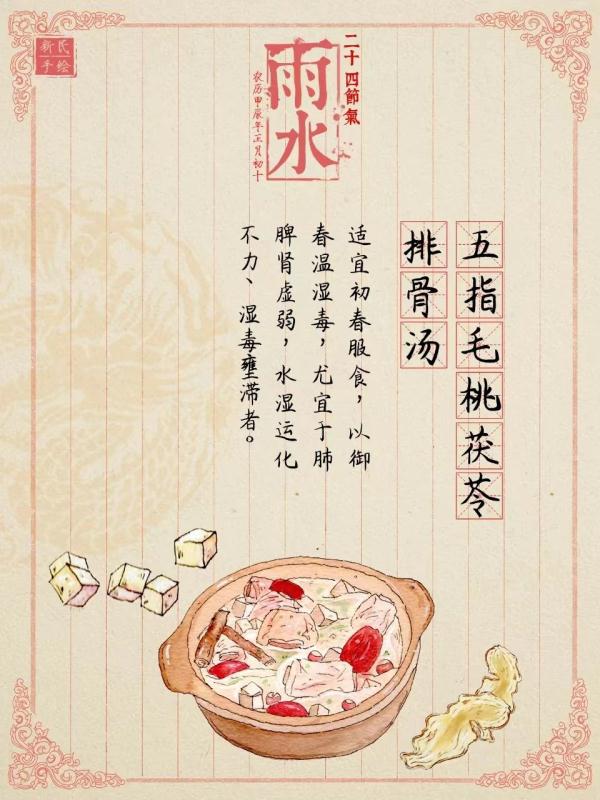 新民
手绘
二十四節氣
雨水
农历甲辰年正月初十
五指毛桃茯苓
排骨汤
适宜初春服食，以御
春温湿毒，尤宜于肺
脾肾虚弱，水湿运化
不力、湿毒壅滞者。